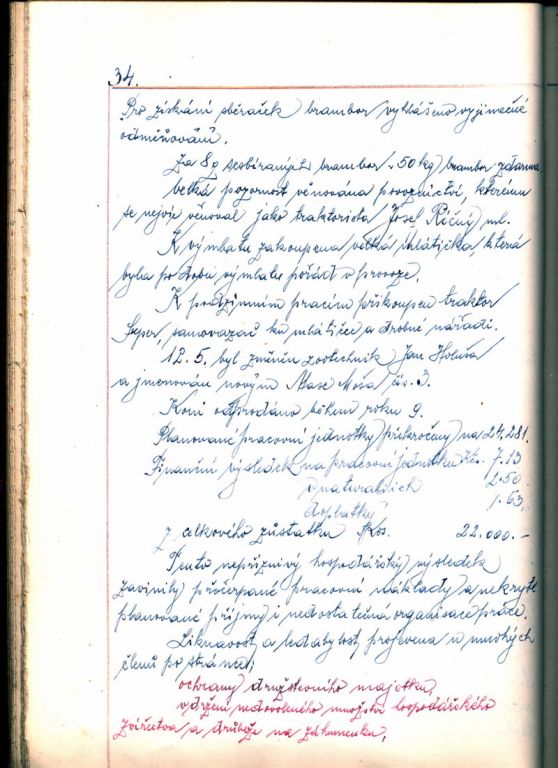 34.
Pro získání sběraček brambor vyhlášeno vyjimečné
odměňování.
Za 8 q sesbíraných brambor 50 kg brambor zdarma
Velká pozornost věnována povoznictví, kterému
se nejvíc věnoval jako traktorista Josef Říčný ml.
K výmlatu zakoupena velká mlátička, která
byla po dobu výmlatu pořád v provoze.
K podzimním pracím přikoupen traktor
Super, samovazač ku mlátičce a drobné nářadí.
12. 5. byl změněn zootechnik Jan Holuša
a jmenován novým čís. 3.
Koní odprodáno během roku 9.
Planované pracovní jednotky překročeny na 24.281.
Finanční výsledek na pracovní jednotku Kčs. 7.13
v naturaliích 2.50
doplatky 1.63
z celkového zůstatku Kčs. 22.000.-
Tento nepříznivý hospodářský výsledek
zavinily přečerpané pracovní náklady a nekryté
planované příjmy i nedostatečná organisace práce.
Liknavost a ledabylost projevena u mnohých
členů po stránce:
ochrany družstevního majetku,
vdržení nedovoleného množství hospodářského
zvířectva a drůbeže na záhumenku,